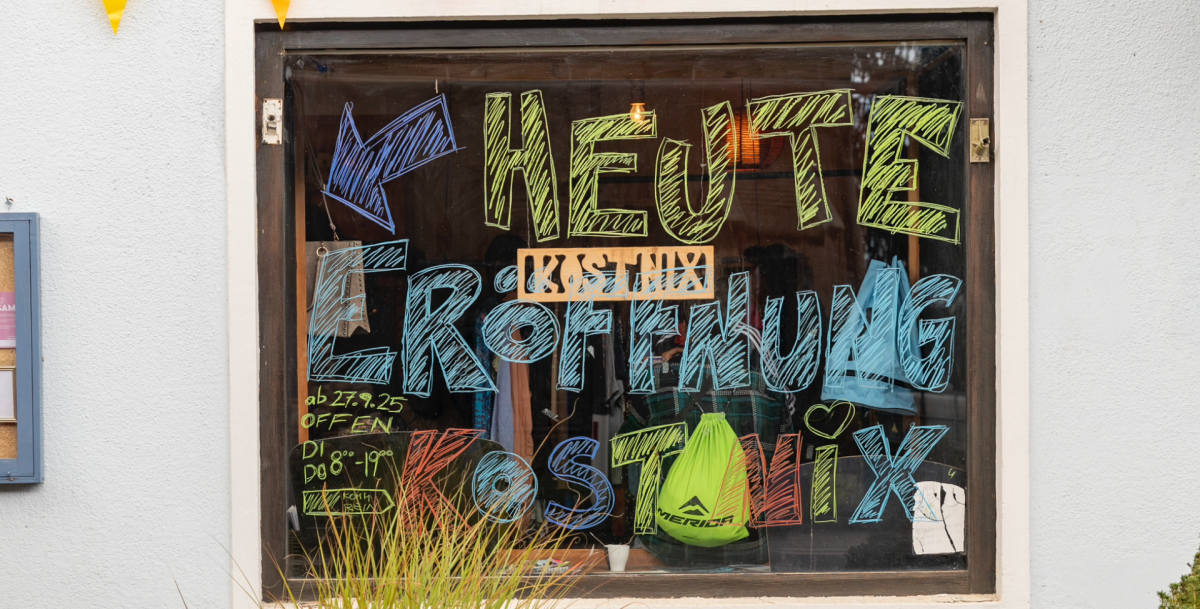 HEUTE
KOSTNIX
ERÖFFNUNG
ab 27.9.25
OFFEN
DI
DO 8°° - 19°°
KOMM
REIN
KOSTNiX
MERIDA
SAM